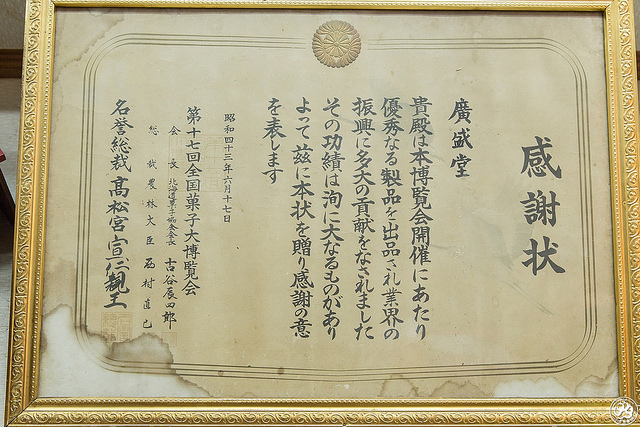 感謝状
廣盛堂
貴殿は本博覧会開催にあたり
優秀なる製品を出品され業界の
振興に多大の貢献をなされました
その功績は洵に大なるものがあり
よって茲に本状を贈り感謝の意
を表します
昭和四十三年六月十七日
第十七回全国菓子大博覧会
会長 北海道菓子協会会長 古谷辰四郎
総裁 農林大臣 西村直己
名誉総裁 高松宮宣仁親王